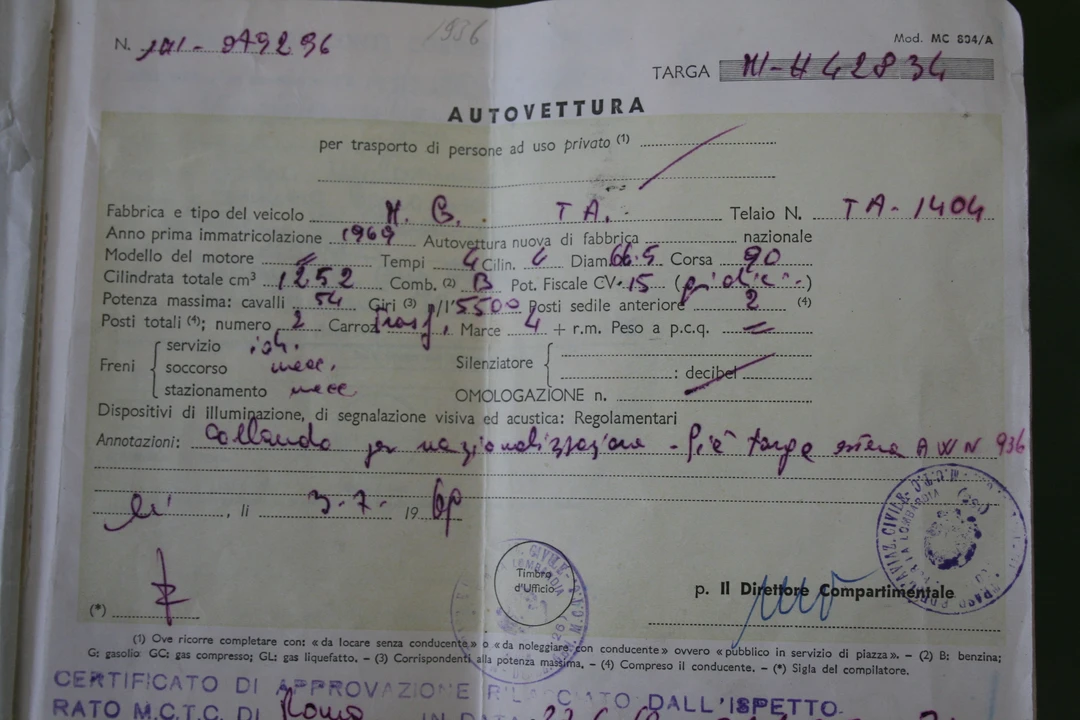 1936
N. 141-049296
Mod. MC 804/A
TARGA MI-H42834
AUTOVETTURA
per trasporto di persone ad uso privato (1)
Fabbrica e tipo del veicolo M. G. TA. Telaio N. TA-1404
Anno prima immatricolazione 1969 Autovettura nuova di fabbrica nazionale
Modello del motore = Tempi 4 Cilin. 4 Diam. 66.5 Corsa 90
Cilindrata totale cm³ 1252 Comb. (2) B Pot. Fiscale CV. 15 (quidici.)
Potenza massima: cavalli 54 Giri (3) /1' 5500 Posti sedile anteriore 2 (4)
Posti totali (4); numero 2 Carroz. trasf. Marce 4 + r.m. Peso a p.c.q. =
Freni
servizio idr.
soccorso mecc.
stazionamento mecc
Silenziatore : decibel
OMOLOGAZIONE n.
Dispositivi di illuminazione, di segnalazione visiva ed acustica: Regolamentari
Annotazioni: Collaudo per nazionalizzazione - Già targa estera AWN 936
Mi, li 3-7- 1969
Timbro
d'Ufficio
p. Il Direttore Compartimentale
(*)
(1) Ove ricorre completare con: « da locare senza conducente » o « da noleggiare con conducente » ovvero « pubblico in servizio di piazza ». - (2) B: benzina;
G: gasolio GC: gas compresso; GL: gas liquefatto. - (3) Corrispondenti alla potenza massima. - (4) Compreso il conducente. - (*) Sigla del compilatore.
CERTIFICATO DI APPROVAZIONE RILASCIATO DALL'ISPETTO-
RATO M.C.T.C. DI Roma IN DATA